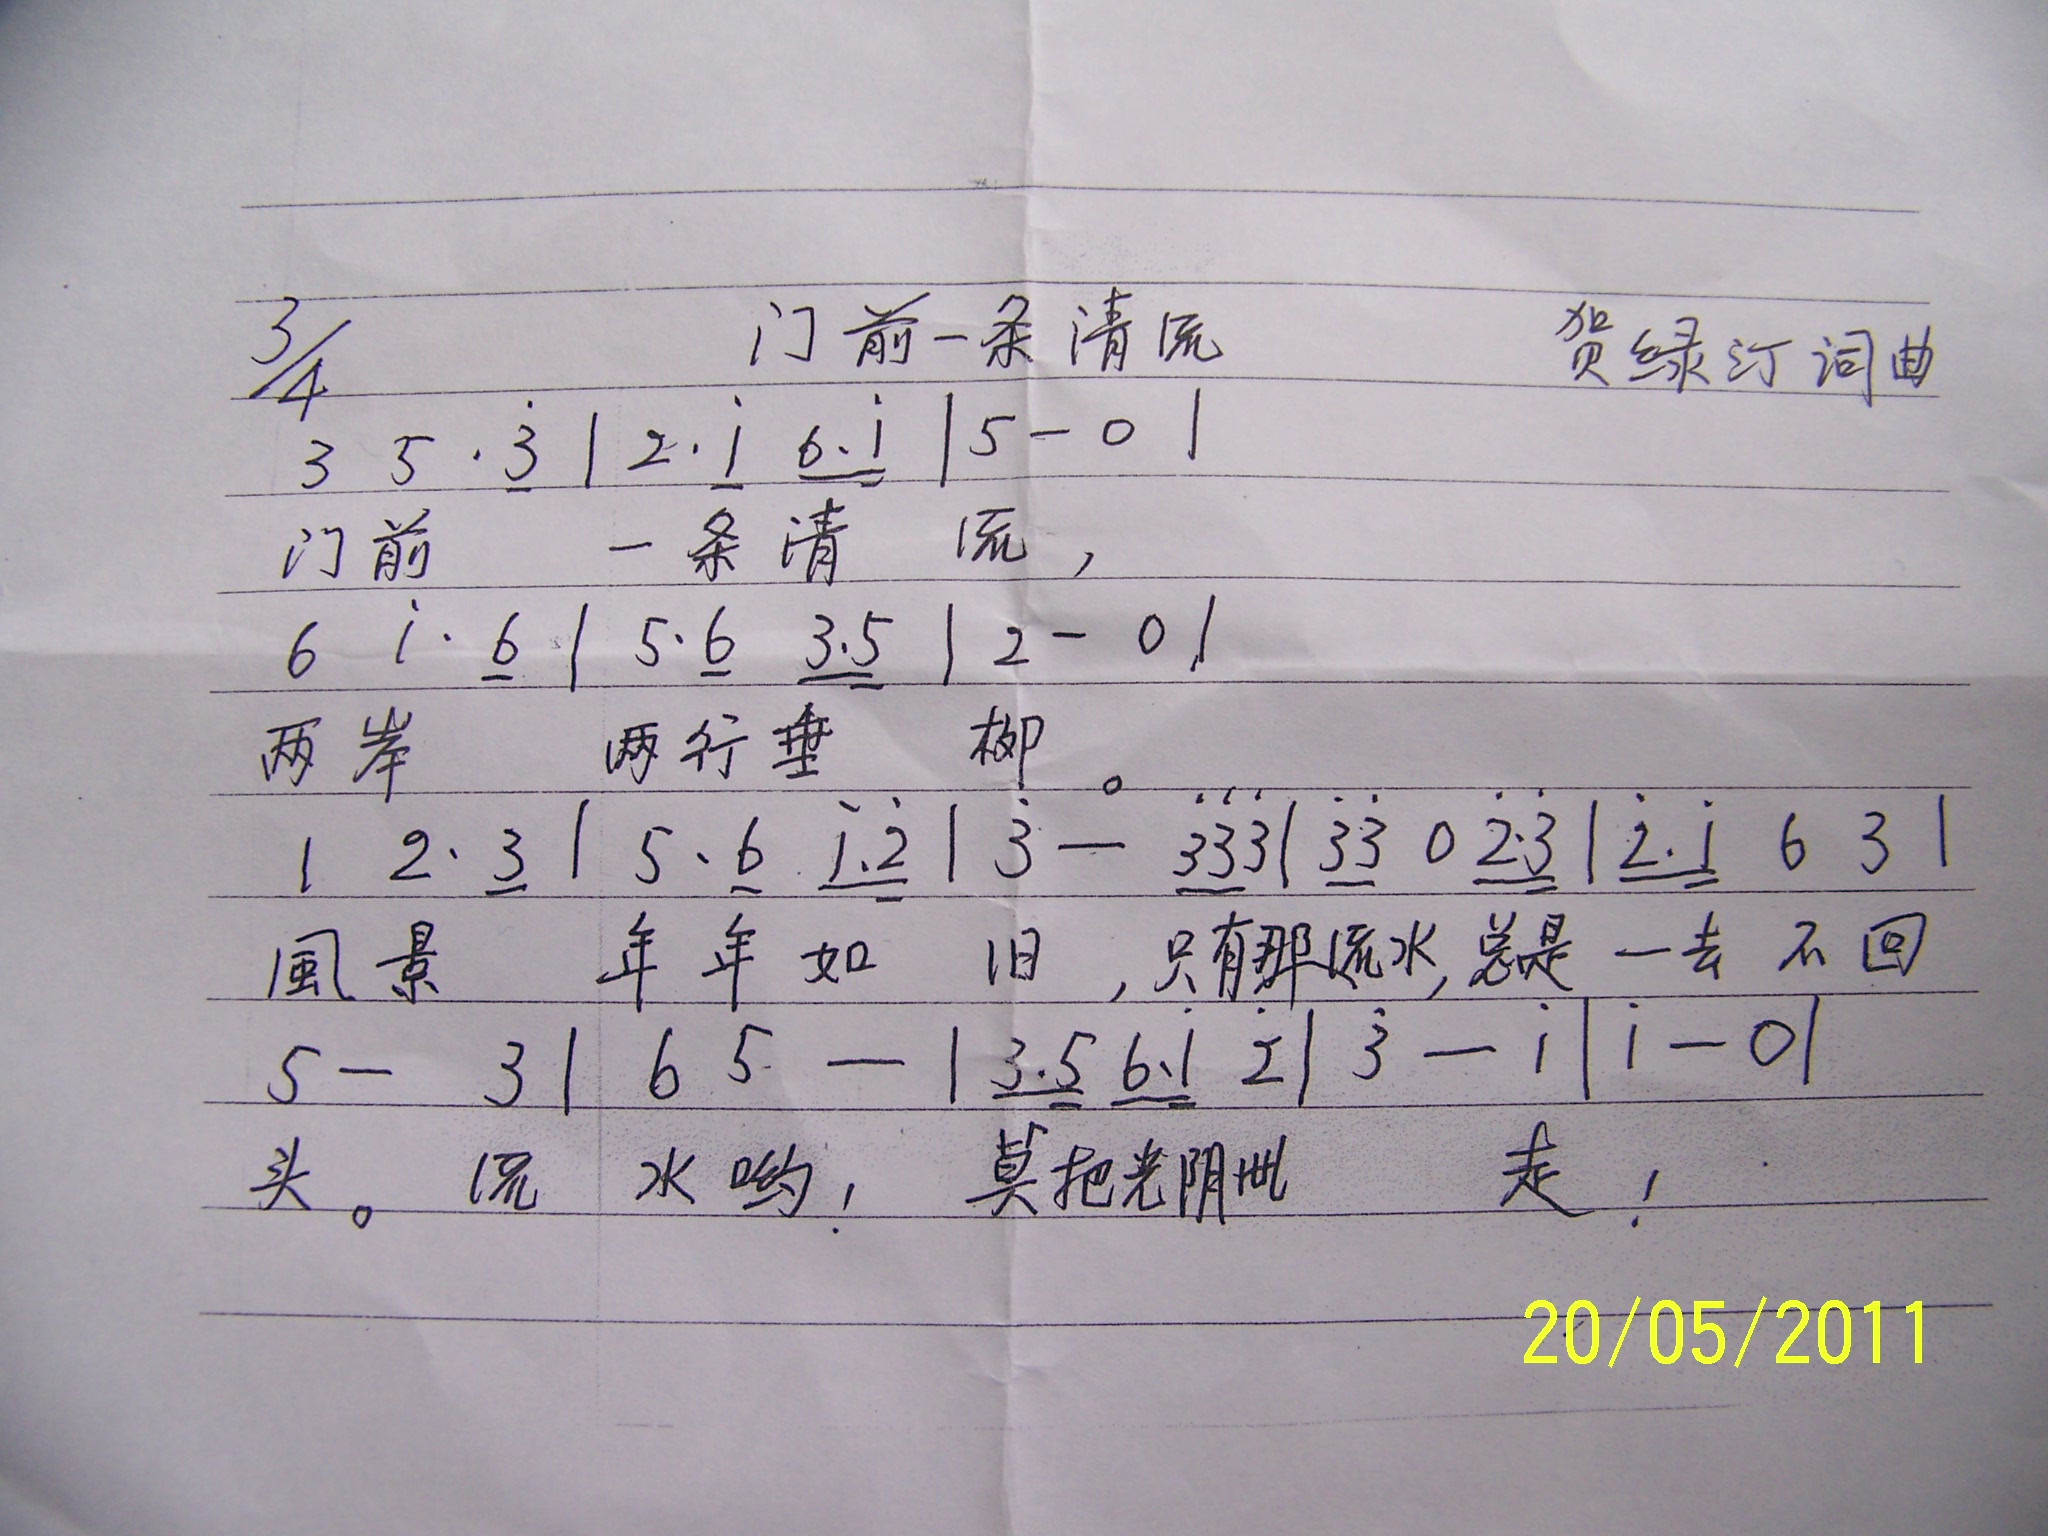 3/4 门前一条清流 贺绿汀词曲
3 5·3̇ | 2·i 6·i | 5 — 0 |
门前 一条清 流，
6 i·6 | 5·6 3·5 | 2 — 0 |
两岸 两行垂 柳。
1 2·3 | 5·6 i·2̇ | 3̇ — 3̇3̇3̇ | 3̇3̇ 0 2̇·3̇ | 2̇·i 6 3 |
風景 年年如 旧，只有那流水，总是一去不回
5 — 3 | 6 5 — | 3·5 6·i 2̇ | 3̇ — i | i — 0 |
头。流 水哟！ 莫把光阴带 走！
20/05/2011